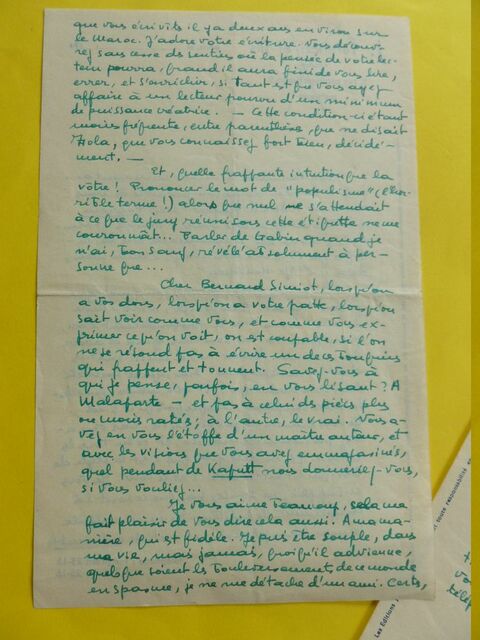 que vous écrivîtes il y a deux ans environ sur
le Maroc. J'adore votre écriture. Vous découv-
rez sans cesse des sentiers où la pensée de votre lec-
teur pourra, quand il aura fini de vous lire,
errer, et s'enrichir, si tant est que vous ayez
affaire à un lecteur pourvu d'un minimum
de puissance créatrice. — Cette condition-ci étant
moins fréquente, entre parenthèse, que ne disait
Zola, que vous connaissez fort bien, décidé-
ment. —
Et, quelle frappante intuition que la
votre ! Prononcer le mot de "populisme" (l'hor-
rible terme !) alors que nul ne s'attendait
à ce que le jury réuni sous cette étiquette ne me
couronnât... Parler de Gabin quand je
n'ai, bon sang, révélé absolument à per-
sonne que...
Cher Bernard Simiot, lorsqu'on
a vos dons, lorsqu'on a votre patte, lorsqu'on
sait voir comme vous, et comme vous ex-
primer ce qu'on voit, on est coupable, si l'on
ne se résoud pas à écrire un de ces bouquins
qui frappent et tonnent. Savez-vous à
qui je pense, parfois, en vous lisant ? A
Malaparte — et pas à celui des pièces plus
ou moins ratées ; à l'autre, le vrai. Vous a-
vez en vous l'étoffe d'un maître auteur, et
avec les visions que vous avez emmagasinées,
quel pendant de Kaputt nous donneriez-vous,
si vous vouliez...
Je vous aime beaucoup, cela me
fait plaisir de vous dire cela aussi. A ma ma-
nière, qui est fidèle. Je puis être souple, dans
ma vie, mais jamais, quoi qu'il advienne,
quels que soient les bouleversements de ce monde
en spasme, je ne me détache d'un ami. Certes,
toute responsabilité
Les Editions
vo
télép